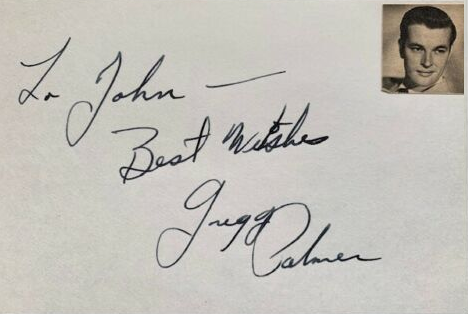 To John —
Best Wishes
Gregg
Palmer